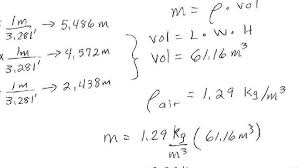 × 1m / 3,281' → 5,486 m
× 1m / 3,281' → 4,572 m
× 1m / 3,281' → 2,438 m
m = ρ · vol
vol = L · W · H
vol = 61.16 m³
ρair = 1.29 kg/m³
m = 1.29 kg/m³ (61.16 m³)